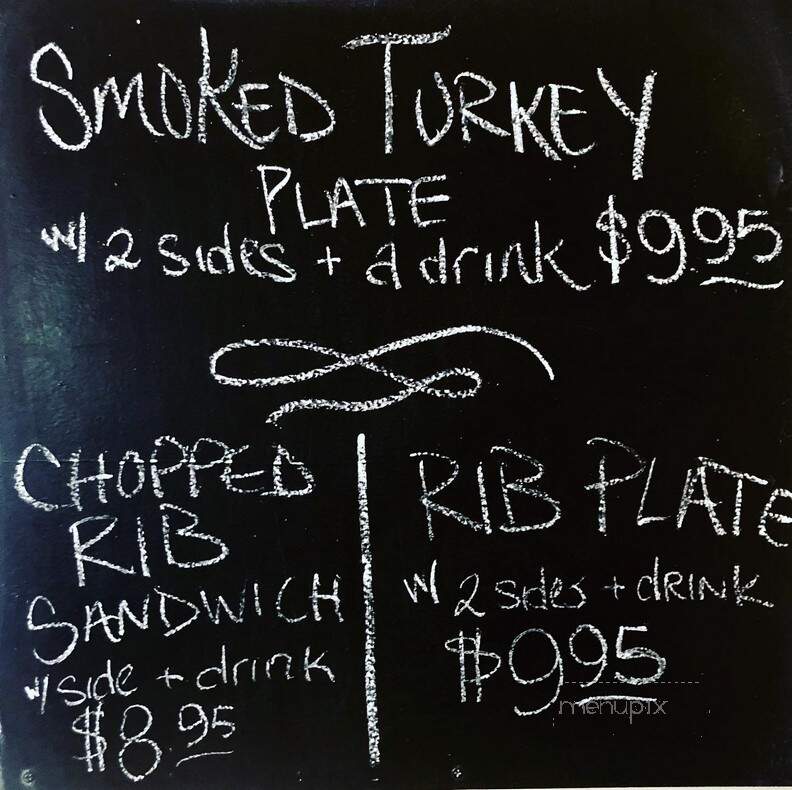 SMOKED TURKEY
PLATE
w/ 2 sides + a drink $9 95
CHOPPED
RIB
SANDWICH
w/ side + drink
$8.95
RIB PLATE
w/ 2 sides + DRINK
$9 95
menupix